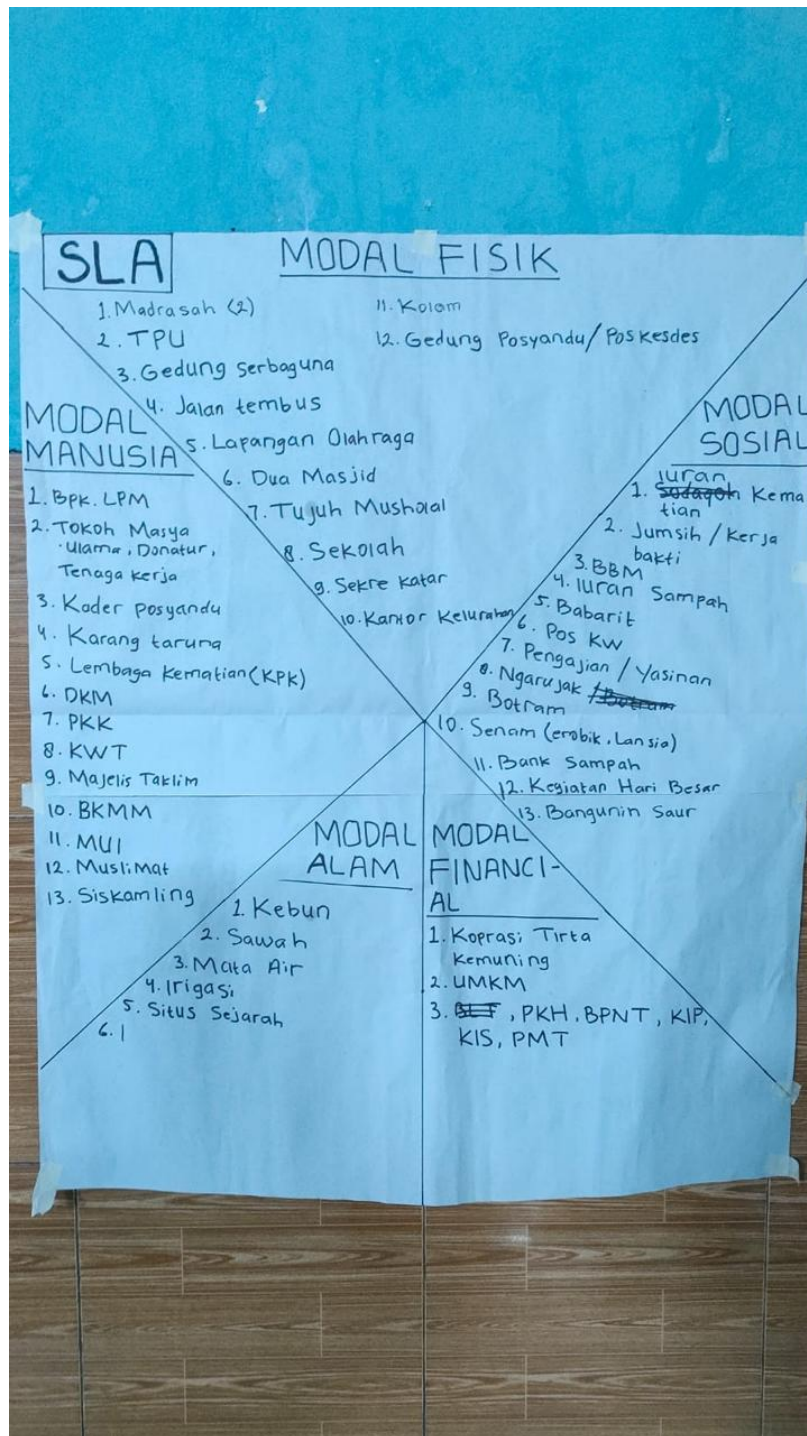 SLA
MODAL FISIK
1. Madrasah (2)
2. TPU
3. Gedung serbaguna
4. Jalan tembus
5. Lapangan Olahraga
6. Dua Masjid
7. Tujuh Musholal
8. Sekolah
9. Sekre katar
10. Kantor Kelurahan
11. Kolam
12. Gedung Posyandu/Poskesdes
MODAL
MANUSIA
1. Bpk. LPM
2. Tokoh Masya
Ulama, Donatur,
Tenaga kerja
3. Kader posyandu
4. Karang taruna
5. Lembaga Kematian (KPK)
6. DKM
7. PKK
8. KWT
9. Majelis Taklim
10. BKMM
11. MUI
12. Muslimat
13. Siskamling
MODAL
SOSIAL
iuran
1. Sodaqoh Kema
tian
2. Jumsih / Kerja
bakti
3. BBM
4. Iuran Sampah
5. Babarit
6. Pos KW
7. Pengajian / Yasinan
8. Ngarujak / Botram
9. Botram
10. Senam (erobik, Lansia)
11. Bank Sampah
12. Kegiatan Hari Besar
13. Bangunin Saur
MODAL
ALAM
1. Kebun
2. Sawah
3. Mata Air
4. Irigasi
5. Situs Sejarah
6. I
MODAL
FINANCI-
AL
1. Koprasi Tirta
Kemuning
2. UMKM
3. , PKH, BPNT, KIP,
KIS, PMT